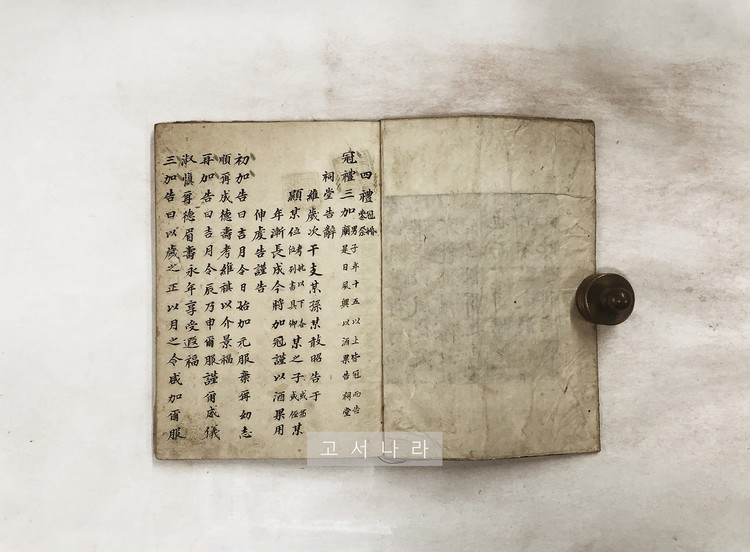 四禮 冠婚喪祭
冠禮三加 男子年十五以上皆冠而告廟是日夙興以酒果告祠堂
祠堂告辭
維歲次干支某孫某敢昭告于
顯某位 考妣以下各位列書具御 某之子 或弟或侄 某
年漸長成今時加冠謹以酒果用
伸虔告謹告
初加告曰吉月令日始加元服棄爾幼志
順爾成德壽考維祺以介景福
再加告曰吉月令辰乃申爾服謹爾威儀
淑愼爾德眉壽永年享受遐福
三加告曰以歲之正以月之令咸加爾服
고서나라